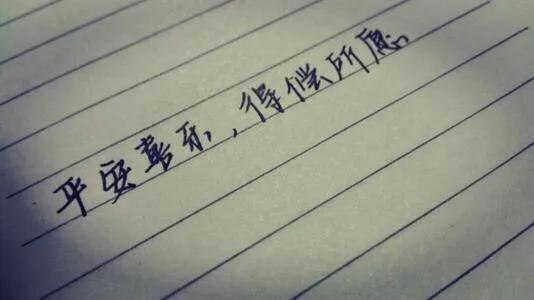 平安喜乐,得偿所愿